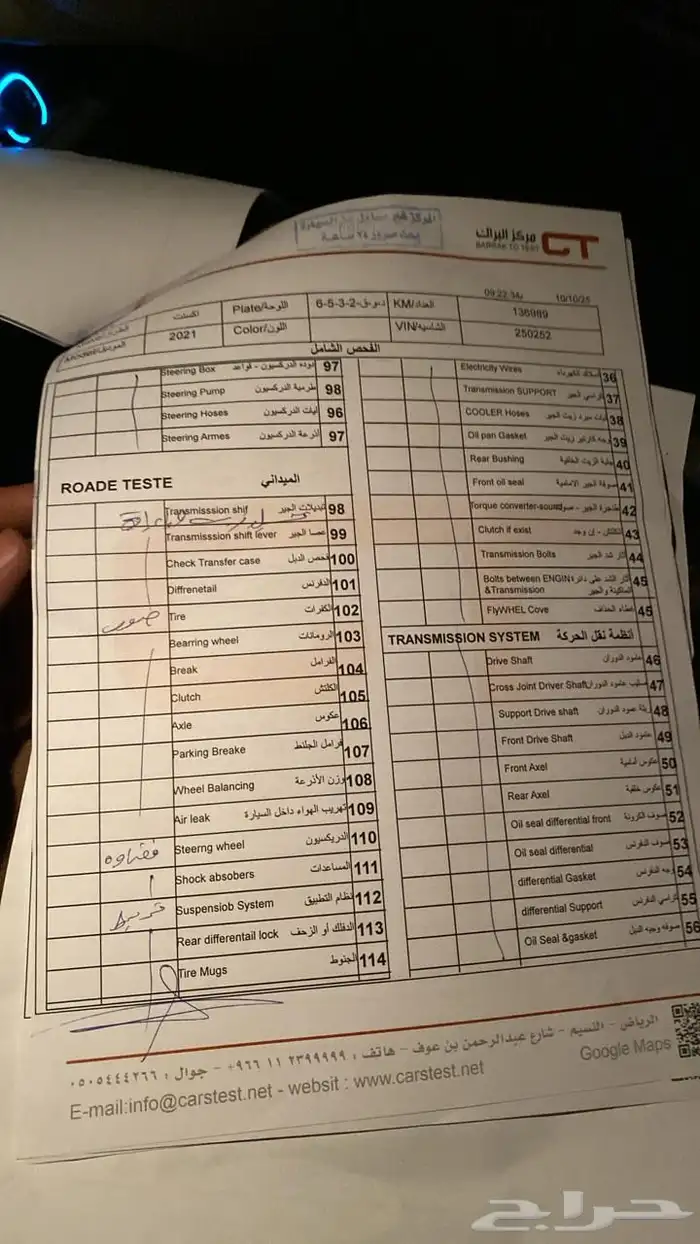 مركز البراك
BARRAK TO TEST
CT
09:22:34 10/10/25
Plate/اللوحة
KM/العداد 136989
2021 Color/اللون VIN/الشاسيه 250252
الفحص الشامل
Steering Box 97
Steering Pump طرمبة الدركسيون 98
Steering Hoses ليات الدركسيون 96
Steering Armes أذرعة الدركسيون 97
ROADE TESTE الميداني
Transmisssion shif تبديلات الجير 98
Transmisssion shift lever عصا الجير 99
Check Transfer case فحص الدبل 100
Diffrenetail الدفرنس 101
Tire الكفرات 102
Bearring wheel الرومانات 103
Break الفرامل 104
Clutch الكلتش 105
Axle عكوس 106
Parking Breake فرامل الجلنط 107
Wheel Balancing وزن الأذرعة 108
Air leak تهريب الهواء داخل السيارة 109
Steerng wheel الدريكسيون 110
Shock absobers المساعدات 111
Suspensiob System نظام التطبيق 112
Rear differentail lock الدفلك أو الزحف 113
Tire Mugs الجنوط 114
Electricity Wires 36
Transmission SUPPORT كراسي الجير 37
COOLER Hoses ليات مبرد زيت الجير 38
Oil pan Gasket وجه كارتير زيت الجير 39
Rear Bushing جلبة الزيت الخلفية 40
Front oil seal صوفة الجير الامامية 41
Torque converter-sound 42
Clutch if exist الكلتش - إن وجد 43
Transmission Bolts 44
Bolts between ENGIN &Transmission 45
FlyWHEL Cove غطاء الحذاف 45
TRANSMISSION SYSTEM أنظمة نقل الحركة
Drive Shaft عامود الدوران 46
Cross Joint Driver Shaft صليب عامود الدوران 47
Support Drive shaft 48
Front Drive Shaft عامود الدبل 49
Front Axel عكوس أمامية 50
Rear Axel عكوس خلفية 51
Oil seal differential front صوف الكرونة 52
Oil seal differential صوف الدفرنس 53
differential Gasket وجه الدفرنس 54
differential Support كراسي الدفرنس 55
Oil Seal &gasket صوفه وجبه الدبل 56
الرياض - النسيم - شارع عبدالرحمن بن عوف - هاتف : ٢٣٩٩٩٩٩ ١١ ٩٦٦+ - جوال : ٠٥٠٥٤٤٤٢٦٦
E-mail:info@carstest.net - websit : www.carstest.net
Google Maps
حراج